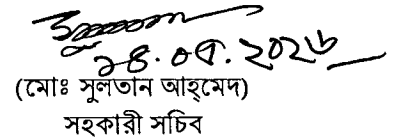 ১৪.০৫.২০২৬
(মোঃ সুলতান আহ্‌মেদ)
সহকারী সচিব